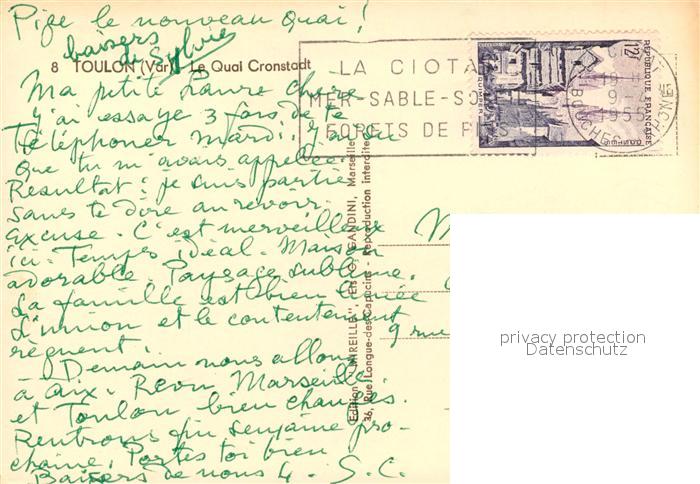 Pige le nouveau Quai!
baisers
de Sylvie
8 TOULON (Var) - Le Quai Cronstadt
Ma petite Laure Chère
j'ai essayé 3 fois de te
téléphoner mardi. J'ai su
que tu m'avais appelée.
Résultat: je suis partie
sans te dire au revoir.
excuse. C'est merveilleux
ici. Temps idéal. Maison
adorable. Paysage sublime.
La famille est bien
L'union et le contentement
règnent.
Demain nous allons
à Aix. Revu Marseille
et Toulon bien changés.
Rentrons fin semaine pro-
chaine. Portes toi bien
Baisers de nous 4. S.C.
LA CIOTA
MER-SABLE-SO
FORETS DE PINS
12F
REPUBLIQUE FRANÇAISE
QUIMPER
1955
BOUCHES DU RHONE
Edition "MIREILLE", Ets TO, GANDINI, Marseille
36, Rue Longue-des-Capucins - Reproduction interdite
M
9 rue
privacy protection
Datenschutz